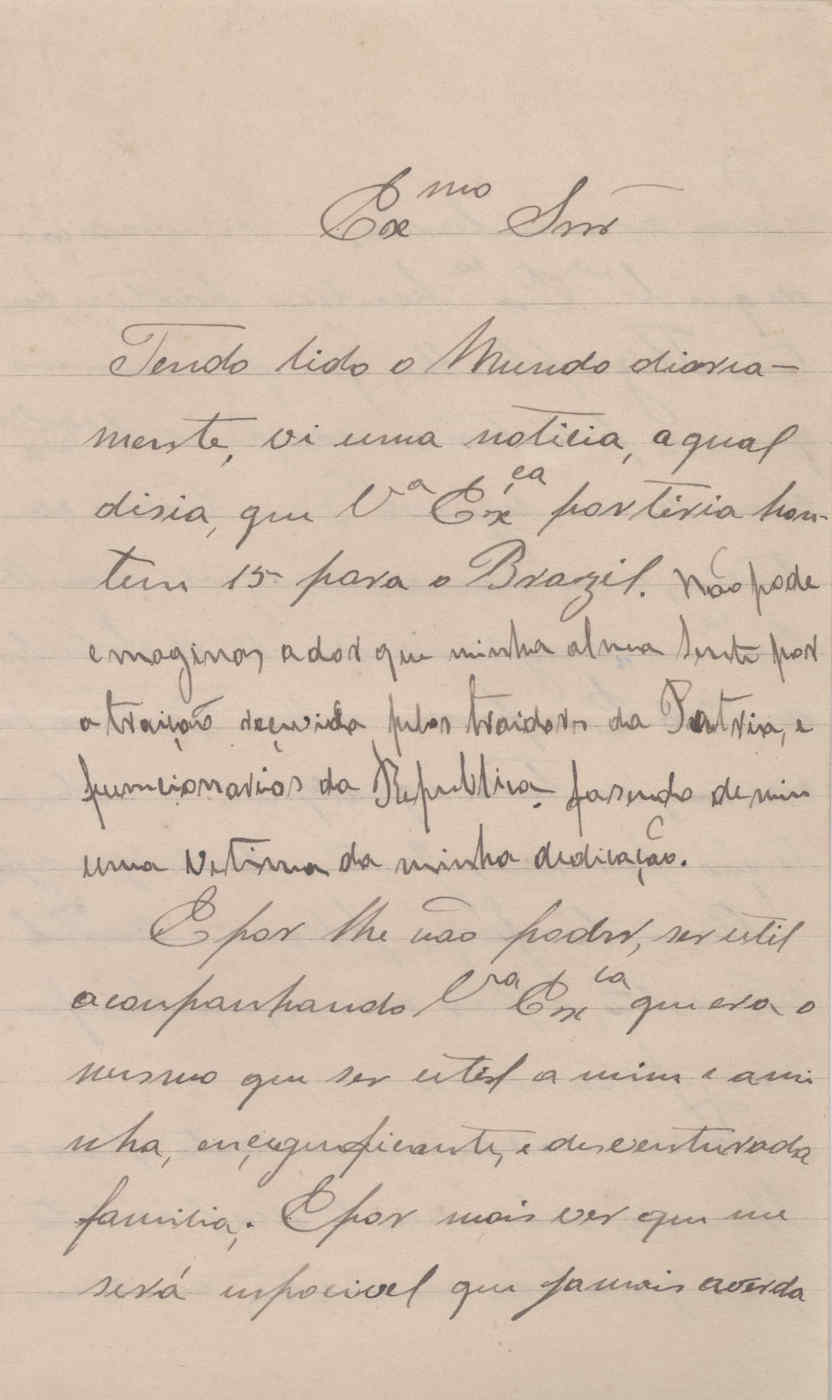 Exmo Snr
Tendo lido o Mundo diaria-
mente, vi uma noticia, aqual
disia, que Va Exca partiria hon-
tem 15 para o Brazil. Não pode
emaginar, ador que minha alma sente por
a traição reçuvida pelos traidores da Patria, e
funcionarios da Republica, fasendo de mim
uma vetima da minha dedicação.
E por lhe não poder, ser util
acompanhando Vra Excia que era o
mesmo que ser util a mim e ami
nha, ençegneficante, e desventurada
familia,. E por mais ver que me
será inpocivel que jamais averda